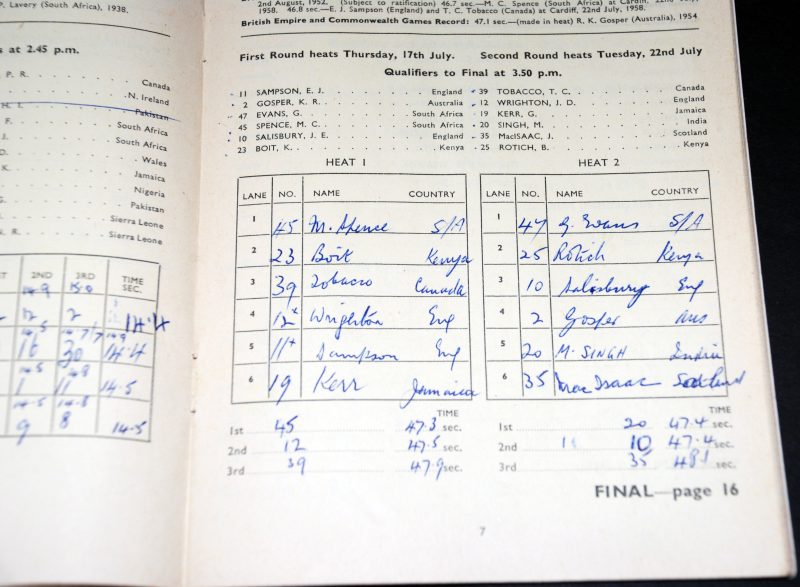 P. Lavery (South Africa), 1938.
s at 2.45 p.m.
P. R. Canada
N. Ireland
H. I. Pakistan
F. South Africa
J. South Africa
D. Wales
K. Jamaica
Nigeria
G. Pakistan
Sierra Leone
N. R. Sierra Leone
2ND 3RD TIME SEC.
14.9 15.0
12 2 14.4
14.5 14.7 14.9
16 30 14.4
14.5 14.9
1 11 14.5
14.5 14.8
9 8 14.5
2nd August, 1952. (Subject to ratification) 46.7 sec.—M. C. Spence (South Africa) at Cardiff, 22nd July,
1958. 46.8 sec.—E. J. Sampson (England) and T. C. Tobacco (Canada) at Cardiff, 22nd July, 1958.
British Empire and Commonwealth Games Record: 47.1 sec.—(made in heat) R. K. Gosper (Australia), 1954
First Round heats Thursday, 17th July. Second Round heats Tuesday, 22nd July
Qualifiers to Final at 3.50 p.m.
11 SAMPSON, E. J. England 39 TOBACCO, T. C. Canada
2 GOSPER, K. R. Australia 12 WRIGHTON, J. D. England
47 EVANS, G. South Africa 19 KERR, G. Jamaica
45 SPENCE, M. C. South Africa 20 SINGH, M. India
10 SALISBURY, J. E. England 35 MacISAAC, J. Scotland
23 BOIT, K. Kenya 25 ROTICH, B. Kenya
HEAT 1 HEAT 2
LANE NO. NAME COUNTRY LANE NO. NAME COUNTRY
1 45 M. Spence S/A 1 47 G. Evans S/A
2 23 Boit Kenya 2 25 Rotich Kenya
3 39 Tobacco Canada 3 10 Salisbury Eng
4 12+ Wrighton Eng 4 2 Gosper Aus
5 11+ Sampson Eng 5 20 M. SINGH India
6 19 Kerr Jamaica 6 35 MacIsaac Scotland
TIME TIME
1st 45 47.3 sec. 1st 20 47.4 sec.
2nd 12 47.5 sec. 2nd 10 47.4 sec.
3rd 39 47.9 sec. 3rd 35 48.1 sec.
FINAL—page 16
7